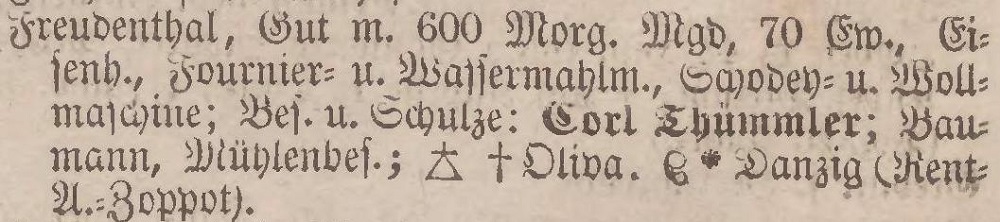 Freudenthal, Gut m. 600 Morg. Mgd, 70 Ew., Ei-
senh., Fournier- u. Wassermahlm., Schodey- u. Woll-
maschine; Bes. u. Schulze: Corl Thümmler; Bau-
mann, Mühlenbes.; † Oliva. * Danzig (Rent-
A.-Zoppot).